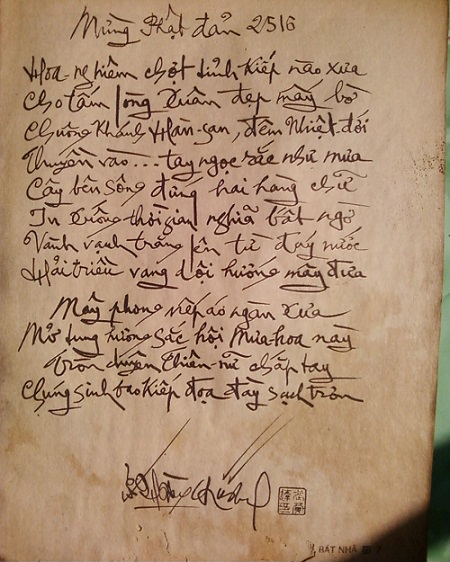 Mừng Phật đản 2516
Hoa-nghiêm chợt tỉnh kiếp nào xưa
Cho tấm lòng Xuân đẹp mấy bờ
Chuông Khánh Hàn-san, đêm Nhiệt-đới
Thuyền vào... tay ngọc rắc như mưa
Cây bên sông đứng hai hàng chữ
In xuống thời gian nghĩa bất ngờ
Vành vạnh trăng lên từ đáy nước
Hải triều vang dội hướng mây đưa
Mấy phong nếp áo ngàn xưa
Mở tung hương sắc hội Mưa-hoa này
Tròn duyên Thiên-nữ chắp tay
Chúng sinh bao kiếp đọa đày sạch trơn
BÁT NHÃ